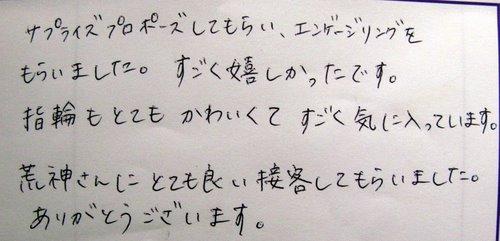 サプライズプロポーズしてもらい、エンゲージリングを
もらいました。すごく嬉しかったです。
指輪もとても かわいくて すごく気に入っています。
荒神さんに とても良い接客してもらいました。
ありがとうございます。